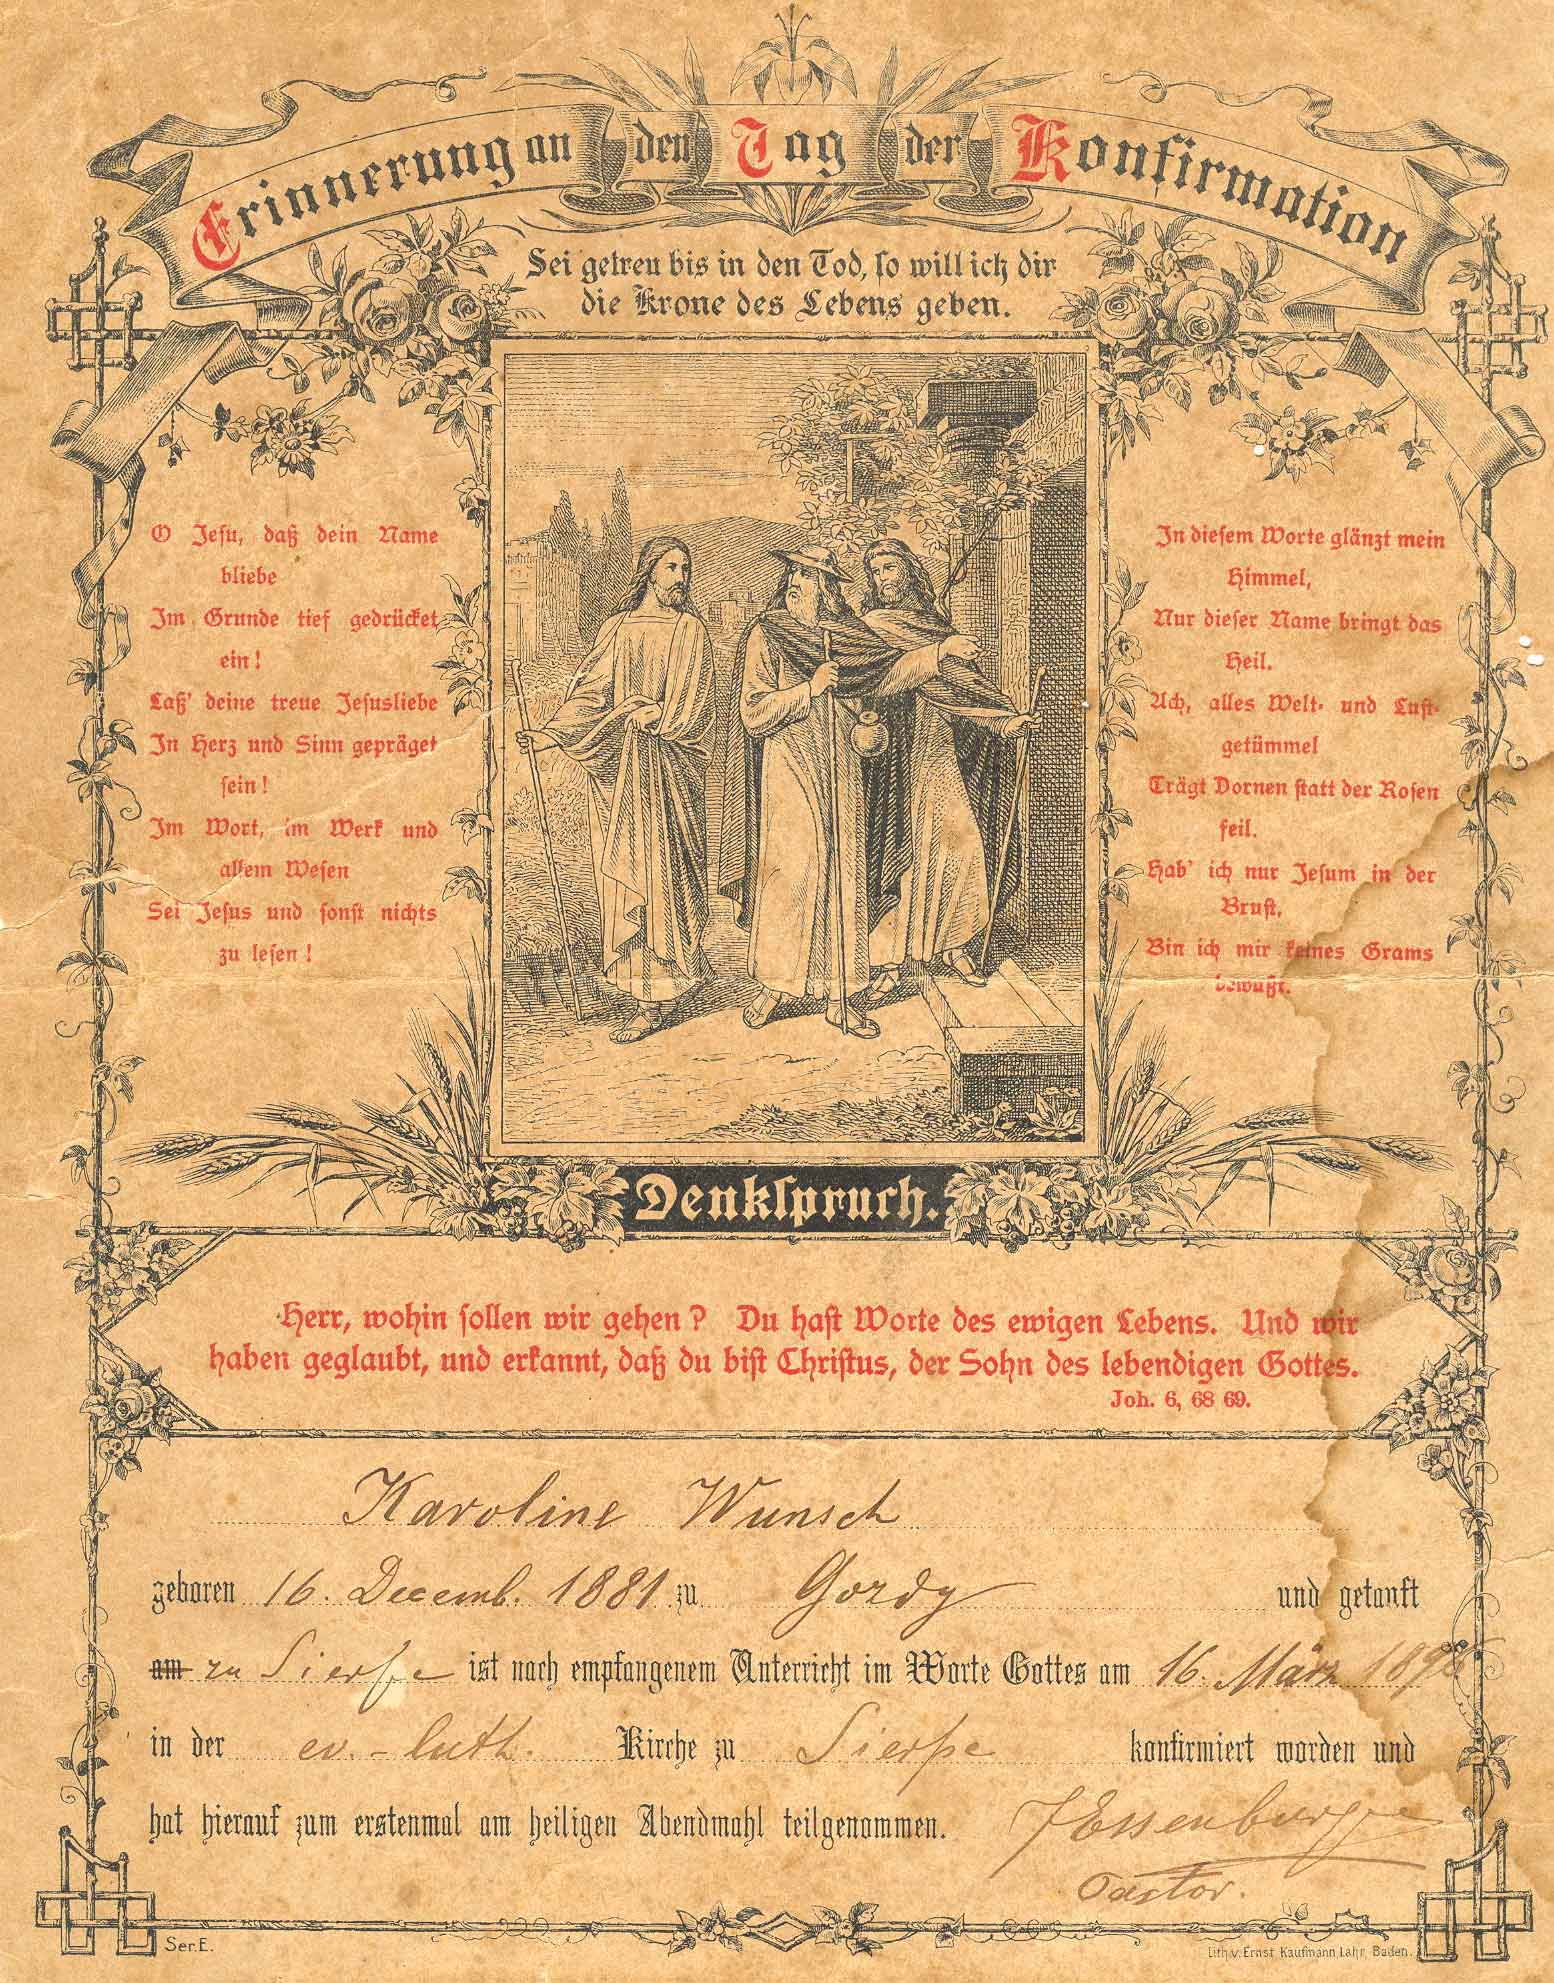 Erinnerung an den Tag der Konfirmation
Sei getreu bis in den Tod, so will ich dir
die Krone des Lebens geben.
O Jesu, daß dein Name
bliebe
Im Grunde tief gedrücket
ein!
Laß' deine treue Jesusliebe
In Herz und Sinn gepräget
sein!
Im Wort, im Werk und
allem Wesen
Sei Jesus und sonst nichts
zu lesen!
In diesem Worte glänzt mein
Himmel,
Nur dieser Name bringt das
Heil.
Ach, alles Welt- und Lust-
getümmel
Trägt Dornen statt der Rosen
feil.
Hab' ich nur Jesum in der
Brust,
Bin ich mir keines Grams
bewußt.
Denkspruch.
Herr, wohin sollen wir gehen? Du hast Worte des ewigen Lebens. Und wir
haben geglaubt, und erkannt, daß du bist Christus, der Sohn des lebendigen Gottes.
Joh. 6, 68 69.
Karoline Wunsch
geboren 16. Decemb. 1881 zu Gordy und getauft
am zu Sierpe ist nach empfangenem Unterricht im Worte Gottes am 16. März
in der ev.-luth. Kirche zu Sierpe konfirmiert worden und
hat hierauf zum erstenmal am heiligen Abendmahl teilgenommen.
Pastor.
Ser. E.
Lith. v. Ernst Kaufmann, Lahr, Baden.